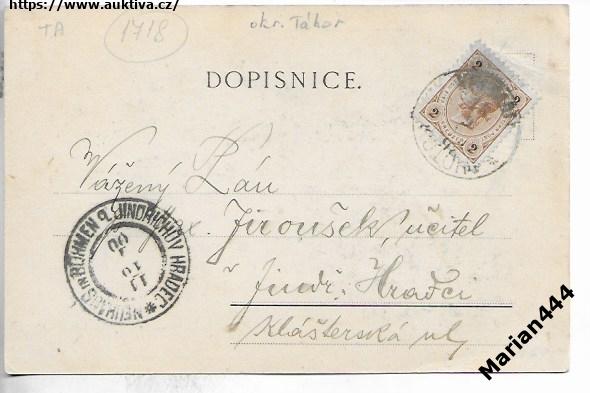 https://www.auktiva.cz/
TA
1718
okr. Tábor
DOPISNICE.
2 2
2 2
Vážený Pán
Jiroušek, učitel
v Jindř. Hradci
Klášterská ul
NEUHAUS in BÖHMEN JINDŘICHŮV HRADEC
11
10
00
Marian444